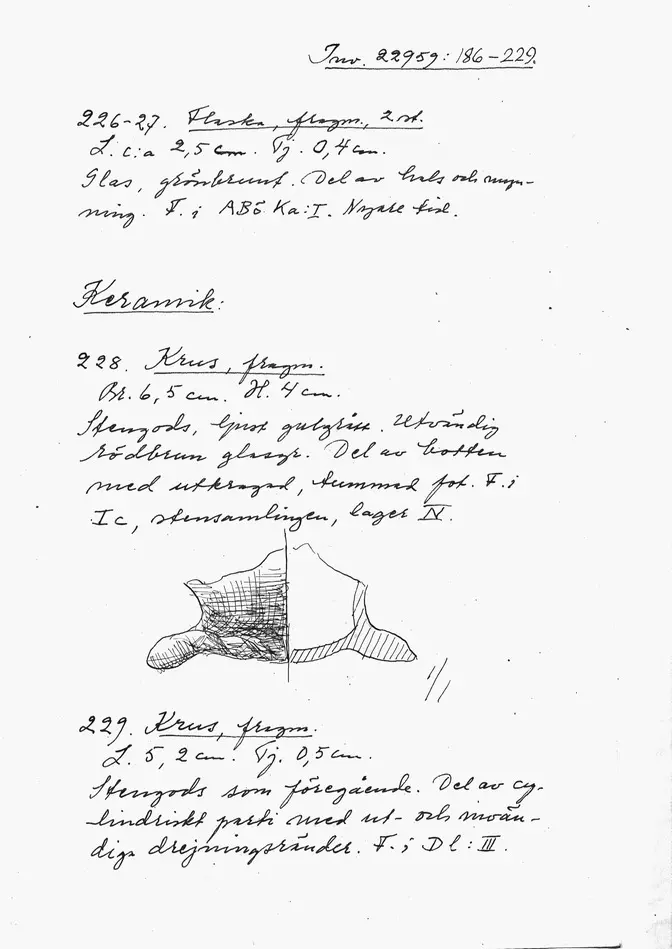 Inv. 22959: 186-229.
226-27. Flaska, fragm., 2 st.
L. c:a 2,5 cm. Tj. 0,4 cm.
Glas, grönbrunt. Del av hals och myn-
ning. F. i ABö Ka:I. Nyare tid.
Keramik:
228. Krus, fragm.
Br. 6,5 cm. H. 4 cm.
Stengods, ljust gulgrått. Utvändig
rödbrun glasyr. Del av botten
med utkragad, tummad fot. F. i
Ic, stensamlingen, lager IV.
1/1
229. Krus, fragm.
L. 5,2 cm. Tj. 0,5 cm.
Stengods som föregående. Del av cy-
lindriskt parti med ut- och invän-
diga drejningsränder. F. i Dl: III.